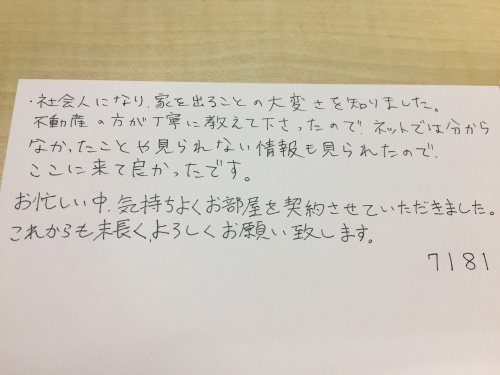 ・社会人になり、家を出ることの大変さを知りました。
不動産の方が丁寧に教えて下さったので、ネットでは分から
なかったことや見られない情報も見られたので、
ここに来て良かったです。
お忙しい中、気持ちよくお部屋を契約させていただきました。
これからも末長く、よろしくお願い致します。
7181